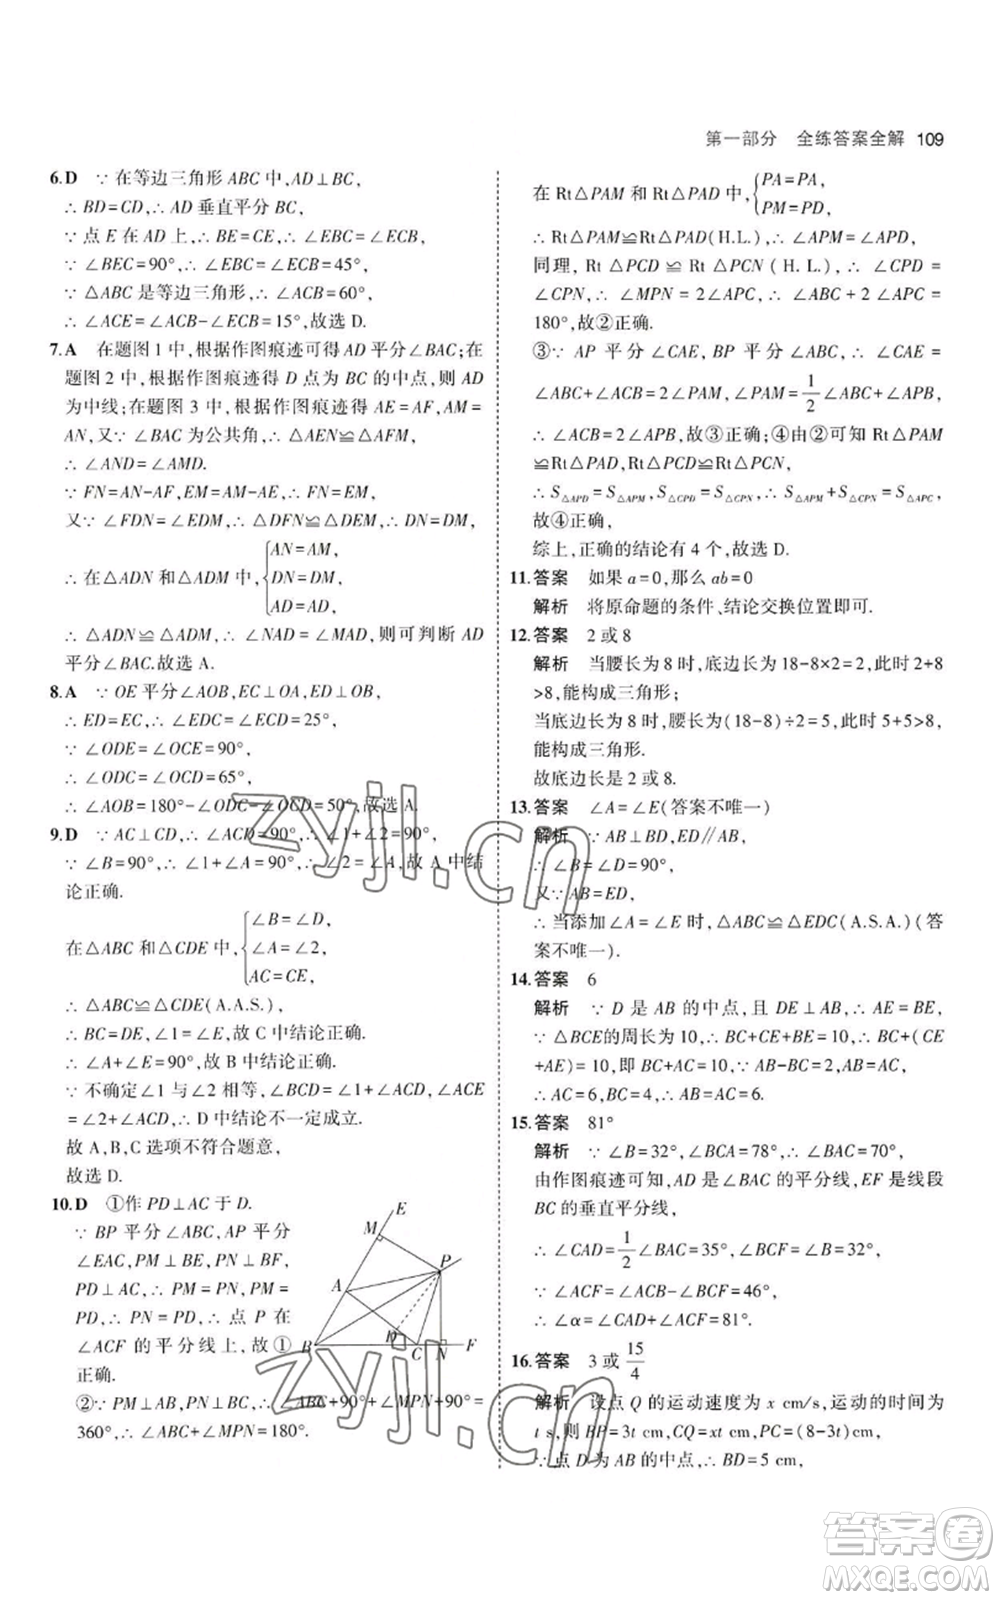 第一部分 全练答案全解 109
6.D ∵ 在等边三角形 ABC 中,AD⊥BC,
∴ BD=CD,∴ AD 垂直平分 BC,
∵ 点 E 在 AD 上,∴ BE=CE,∴ ∠EBC=∠ECB,
∵ ∠BEC=90°,∴ ∠EBC=∠ECB=45°,
∵ △ABC 是等边三角形,∴ ∠ACB=60°,
∴ ∠ACE=∠ACB-∠ECB=15°,故选 D.
7.A 在题图 1 中,根据作图痕迹可得 AD 平分∠BAC;在
题图 2 中,根据作图痕迹得 D 点为 BC 的中点,则 AD
为中线;在题图 3 中,根据作图痕迹得 AE=AF,AM=
AN,又∵ ∠BAC 为公共角,∴ △AEN≌△AFM,
∴ ∠AND=∠AMD.
∵ FN=AN-AF,EM=AM-AE,∴ FN=EM,
又∵ ∠FDN=∠EDM,∴ △DFN≌△DEM,∴ DN=DM,
∴ 在△ADN 和△ADM 中,{AN=AM,
DN=DM,
AD=AD,
∴ △ADN≌△ADM,∴ ∠NAD=∠MAD,则可判断 AD
平分∠BAC.故选 A.
8.A ∵ OE 平分∠AOB,EC⊥OA,ED⊥OB,
∴ ED=EC,∴ ∠EDC=∠ECD=25°,
∵ ∠ODE=∠OCE=90°,
∴ ∠ODC=∠OCD=65°,
∴ ∠AOB=180°-∠ODC-∠OCD=50°,故选 A.
9.D ∵ AC⊥CD,∴ ∠ACD=90°,∴ ∠1+∠2=90°,
∵ ∠B=90°,∴ ∠1+∠A=90°,∴ ∠2=∠A,故 A 中结
论正确.
在△ABC 和△CDE 中,{∠B=∠D,
∠A=∠2,
AC=CE,
∴ △ABC≌△CDE(A.A.S.),
∴ BC=DE,∠1=∠E,故 C 中结论正确.
∴ ∠A+∠E=90°,故 B 中结论正确.
∵ 不确定∠1 与∠2 相等,∠BCD=∠1+∠ACD,∠ACE
=∠2+∠ACD,∴ D 中结论不一定成立.
故 A、B、C 选项不符合题意,
故选 D.
10.D ①作 PD⊥AC 于 D.
∵ BP 平分∠ABC,AP 平分
∠EAC,PM⊥BE,PN⊥BF,
PD⊥AC,∴ PM=PN,PM=
PD,∴ PN=PD,∴ 点 P 在
∠ACF 的平分线上,故①
正确.
E
M
P
A
D
B
C
N
F
②∵ PM⊥AB,PN⊥BC,∴ ∠ABC+90°+∠MPN+90°=
360°,∴ ∠ABC+∠MPN=180°.
在 Rt△PAM 和 Rt△PAD 中,{PA=PA,
PM=PD,
∴ Rt△PAM≌Rt△PAD(H.L.),∴ ∠APM=∠APD,
同理, Rt △PCD ≌ Rt △PCN (H. L.), ∴ ∠CPD
=∠CPN,∴ ∠MPN = 2∠APC, ∴ ∠ABC+2 ∠APC =
180°,故②正确.
③∵ AP 平分∠CAE,BP 平分∠ABC,∴ ∠CAE=
∠ABC+∠ACB=2∠PAM,∠PAM=1/2∠ABC+∠APB,
∴ ∠ACB=2∠APB,故③正确;④由②可知 Rt△PAM
≌Rt△PAD,Rt△PCD≌Rt△PCN,
∴ S△APD=S△APM,S△CPD=S△CPN,∴ S△APM+S△CPN=S△APC,
故④正确,
综上,正确的结论有 4 个,故选 D.
11.答案 如果 a=0,那么 ab=0
解析 将原命题的条件、结论交换位置即可.
12.答案 2 或 8
解析 当腰长为 8 时,底边长为 18-8×2=2,此时 2+8
>8,能构成三角形;
当底边长为 8 时,腰长为(18-8)÷2=5,此时 5+5>8,
能构成三角形.
故底边长是 2 或 8.
13.答案 ∠A=∠E(答案不唯一)
解析 ∵ AB⊥BD,ED∥AB,
∴ ∠B=∠D=90°,
又∵ AB=ED,
∴ 当添加∠A=∠E 时,△ABC≌△EDC(A.S.A.)(答
案不唯一).
14.答案 6
解析 ∵ D 是 AB 的中点,且 DE⊥AB,∴ AE=BE,
∵ △BCE的周长为 10,∴ BC+CE+BE=10,∴ BC+(CE
+AE)=10,即 BC+AC=10,∵ AB-BC=2,AB=AC,
∴ AC=6,BC=4,∴ AB=AC=6.
15.答案 81°
解析 ∵ ∠B=32°,∠BCA=78°,∴ ∠BAC=70°,
由作图痕迹可知,AD 是∠BAC 的平分线,EF 是线段
BC 的垂直平分线,
∴ ∠CAD=1/2∠BAC=35°,∠BCF=∠B=32°,
∵ ∠ACF=∠ACB-∠BCF=46°,
∴ ∠α=∠CAD+∠ACF=81°.
16.答案 3 或15/4
解析 设点 Q 的运动速度为 x cm/s,运动的时间为
t s,则 BP=3t cm,CQ=xt cm,PC=(8-3t)cm,
∵ 点 D 为 AB 的中点,∴ BD=5 cm,
zyjl.cn
zyjl.cn
答案卷
MXQE.COM